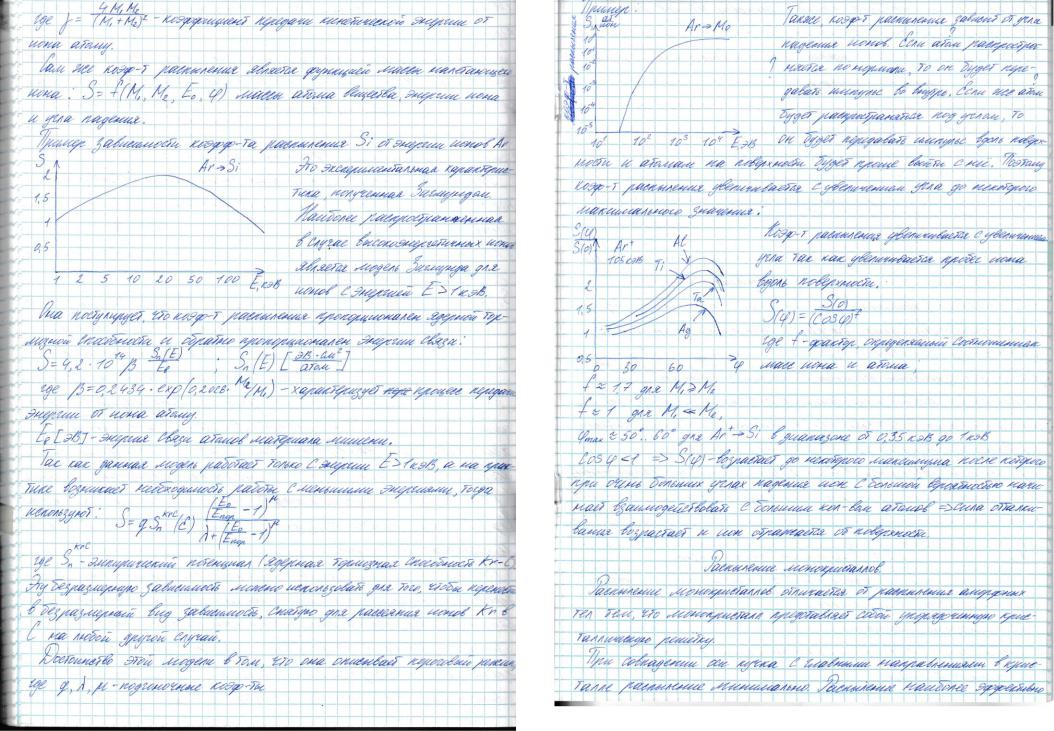 где γ = 4M₁M₂/(M₁+M₂)² - коэффициент передачи кинетической энергии от
иона атому.
Сам же коэф-т распыления является функцией массы налетающего
иона: S = f(M₁, M₂, E₀, φ) массы атома вещества, энергии иона
и угла падения.
Пример зависимости коэфф-та распыления Si от энергии ионов Ar
S
2
1,5
1
0,5
Ar→Si
1 2 5 10 20 50 100 E, кэВ
Это экспериментальная характерис-
тика полученная Зигмундом.
Наиболее распространенная
в случае высокоэнергетичных ионов
является модель Зигмунда для
ионов с энергией E>1кэВ.
Она постулирует, что коэф-т распыления пропорционален ядерной тор-
мозной способности и обратно пропорционален энергии связи:
S = 4,2 · 10¹⁴ β Sn(E)/E ; Sn(E) [эВ·см²/атом]
где β = 0,2434 · exp( M₂/M₁) - характеризует процесс передачи
энергии от иона атому.
[эВ] - энергия связи атомов материала мишени.
Так как данная модель работает только с энергии E>1кэВ, а на прак-
тике возникает необходимость работы с меньшими энергиями, тогда
используют: S = q Sn^KrC(ε) (E₀/Eпор - 1)^μ / (λ + (E₀/Eпор - 1)^μ)
где Sn^KrC - эмпирический потенциал (ядерная тормозная способность Kr-C)
Эту безразмерную зависимость можно использовать для того, чтобы перенести
в безразмерный вид зависимость, снятую для рассеяния ионов Kr в
C на любой другой случай.
Достоинство этой модели в том, что она описывает пороговый режим,
где q, λ, μ - подгоночные коэф-ты
Пример:
S, ат/ион
Ar→Mo
распыления
10¹ 10² 10³ 10⁴ E, эВ
Также коэф-т распыления зависит от угла
падения ионов. Если атом распростра-
няется по нормали, то он будет пере-
давать импульс во внутрь. Если же атом
будет распространятся под углом, то
он будет передавать импульс вдоль поверх-
ности и атомам на поверхности будет проще выйти с неё. Поэтому
коэф-т распыления увеличивается с увеличением угла до некоторого
максимального значения:
S(φ)/S(0)
Ar⁺
1,05 кэВ
Al
Ti
Ta
Ag
2
1,5
1
0,5
0 30 60 φ
Коэф-т распыления увеличивается с увеличением
угла так как увеличивается пробег иона
вдоль поверхности.
S(φ) = S(0)/(cosφ)^f
где f - фактор, определяемый соотношением
масс иона и атома;
f ≈ 1,7 для M₁ ≥ M₂
f ≈ 1 для M₁ ≪ M₂,
φmax ≈ 50°..60° для Ar⁺→Si в диапазоне от 0,35 кэВ до 1кэВ
cos φ < 1 ⇒ S(φ) - возрастает до некоторого максимума после которого
при очень больших углах падения ион с большой вероятностью начи-
нает взаимодействовать с большим кол-вом атомов ⇒ сила отталки-
вания возрастает и ион отражается от поверхности.
Распыление монокристаллов
Распыление монокристаллов отличается от распыления аморфных
тел тем, что монокристалл представляет собой упорядоченную крис-
таллическую решётку.
При совпадении оси пучка с главными направлениями в крис-
талле распыление минимально. Распыление наиболее эффективно